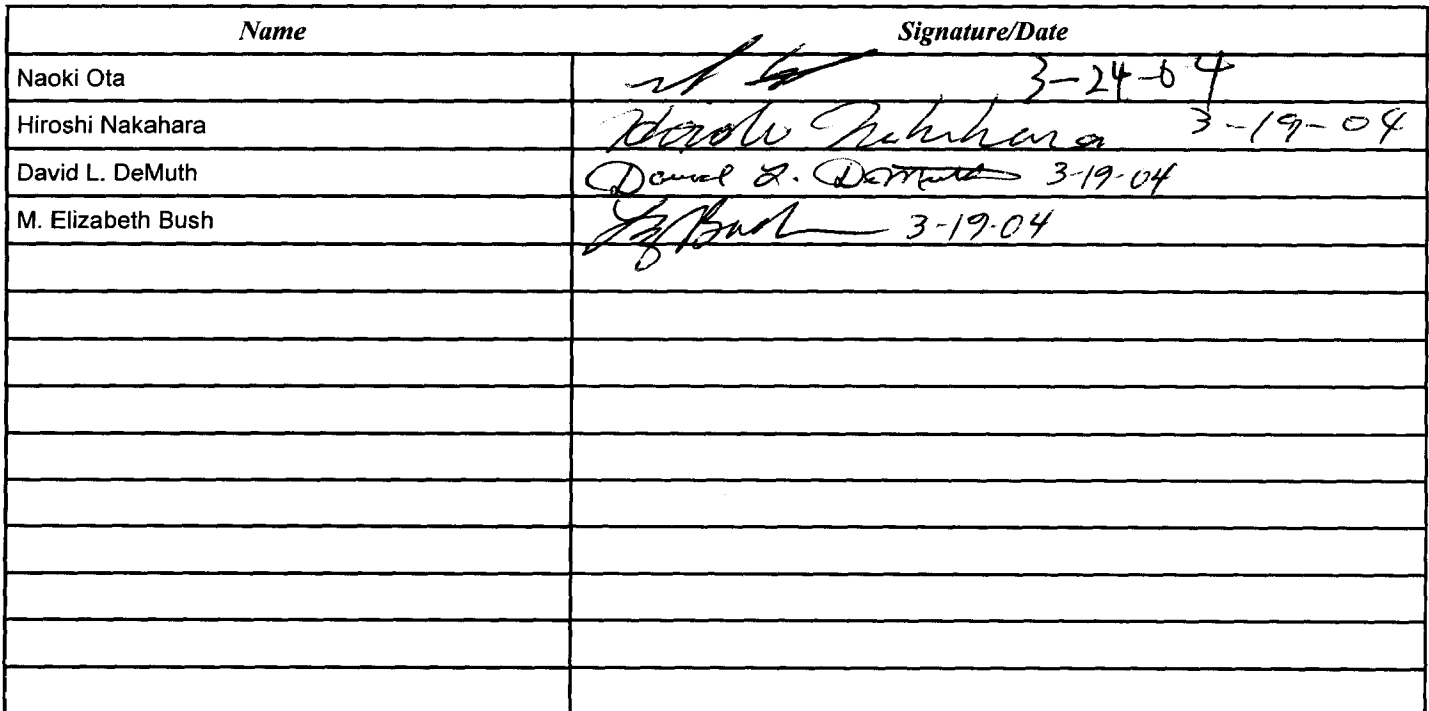 Name Signature/Date
Naoki Ota 3-24-04
Hiroshi Nakahara Hiroshi Nakahara 3-19-04
David L. DeMuth David L. DeMuth 3-19-04
M. Elizabeth Bush Liz Bush 3-19-04